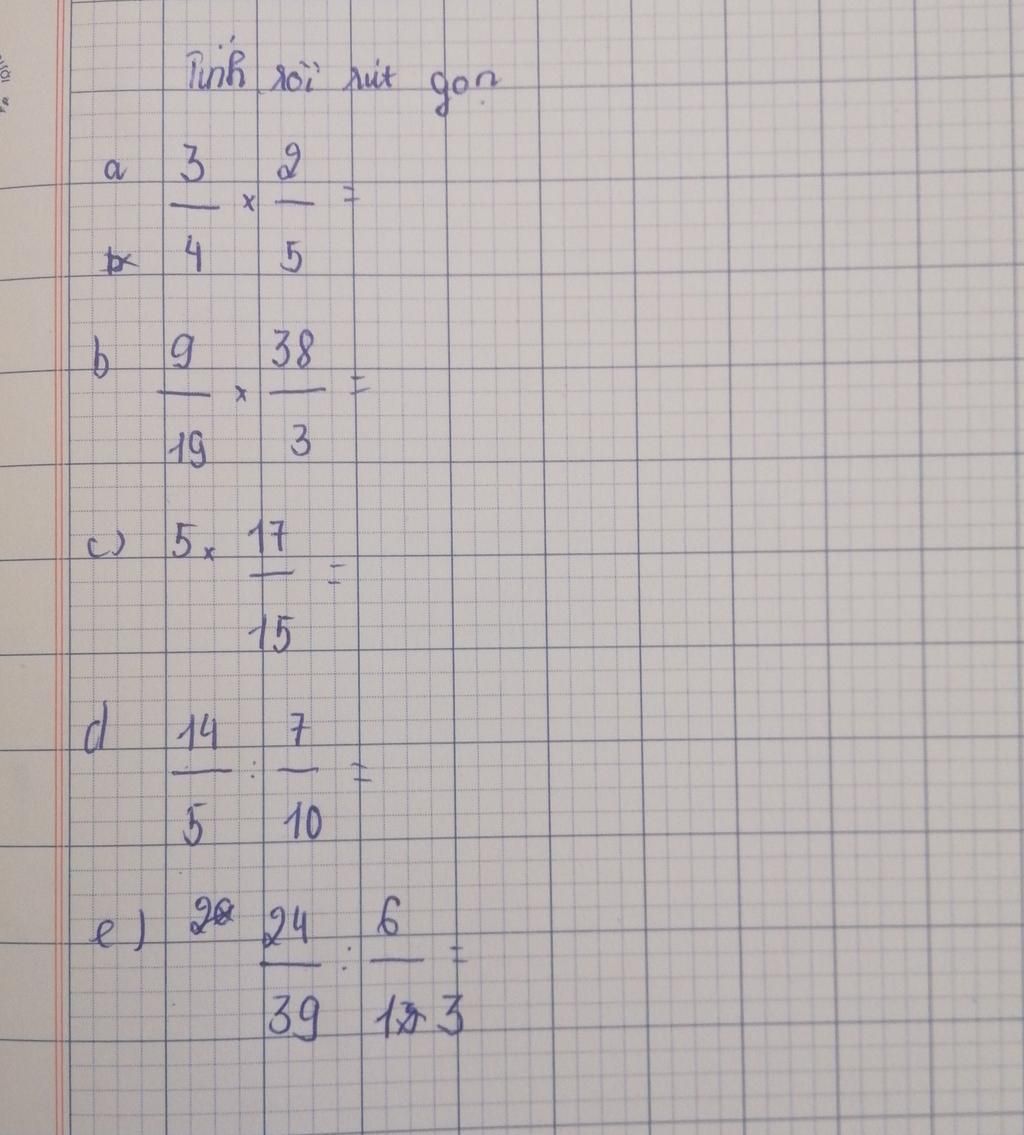 Tính rồi rút gọn
a 3/4 × 2/5 =
b 9/19 × 38/3 =
c) 5 × 17/15 =
d 14/5 : 7/10 =
e) 24/39 : 6/13 =